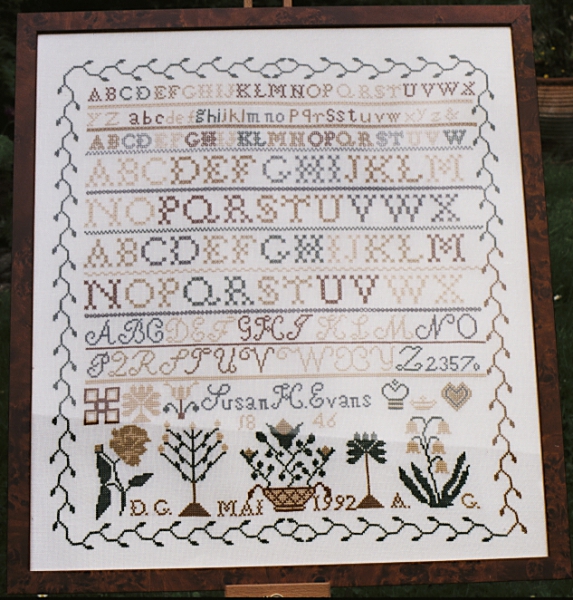 ABCDEFGHIJKLMNOPQRSTUVWX
YZ abcdefghijklmnopqrsstuvwxyz&
ABCDEFGHIJKLMNOPQRSTUVW
ABCDEFGHIJKLM
NOPQRSTUVWX
ABCDEFGHIJKLM
NOPQRSTUVWX
ABCDEFGHIJKLMNO
PQRSTUVWXYZ2357
Susan H. Evans
1846
D.G. MAI 1992 A. G.